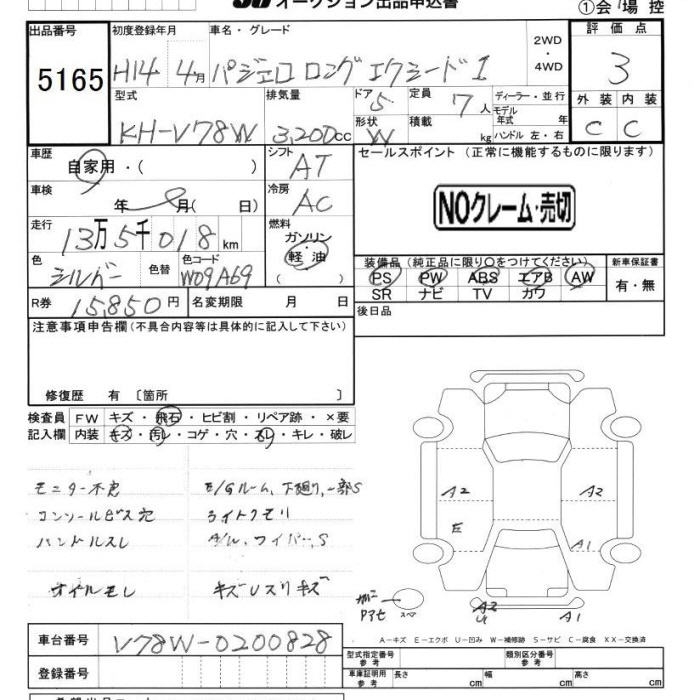 オークション出品申込書
①会場控
出品番号
5165
初度登録年月
H14 4月
車名・グレード
パジェロ ロング エクシード I
2WD
・
4WD
評価点
3
型式
KH-V78W
排気量
3,200cc
ドア 5
形状 W
定員 7人
積載 kg
ディーラー・並行
モデル年式 年
ハンドル 左・右
外装 内装
C C
車歴
自家用・( )
シフト
AT
セールスポイント (正常に機能するものに限ります)
NOクレーム・売切
車検
年 月( 日)
冷房
AC
走行
13万5千018km
燃料
ガソリン
・
軽油
( )
色
シルバー
色替
色コード
W09A69
装備品(純正品に限り○をつけてください)
PS PW ABS エアB AW
SR ナビ TV カワ
新車保証書
有・無
R券 15,850円
名変期限 月 日
後日品
注意事項申告欄(不具合内容等は具体的に記入して下さい)
修復歴 有〔箇所 〕
検査員記入欄
FW キズ・飛石・ヒビ割・リペア跡・×要
内装 キズ・汚レ・コゲ・穴・スレ・キレ・破レ
モニター不良
E/Gルーム、下廻り、一部S
コンソールビス穴
ライトクモリ
ハンドルスレ
ワイパーS
オイルモレ
キズUスリキズ
A2 A2
E
A1
スペア
A2
U
A1
A-キズ E-エクボ U-凹み W-補修跡 S-サビ C-腐食 XX-交換済
車台番号
V78W-0200828
型式指定番号
参考
類別区分番号
参考
登録番号
車庫証明用
参考
長さ cm
幅 cm
高さ cm